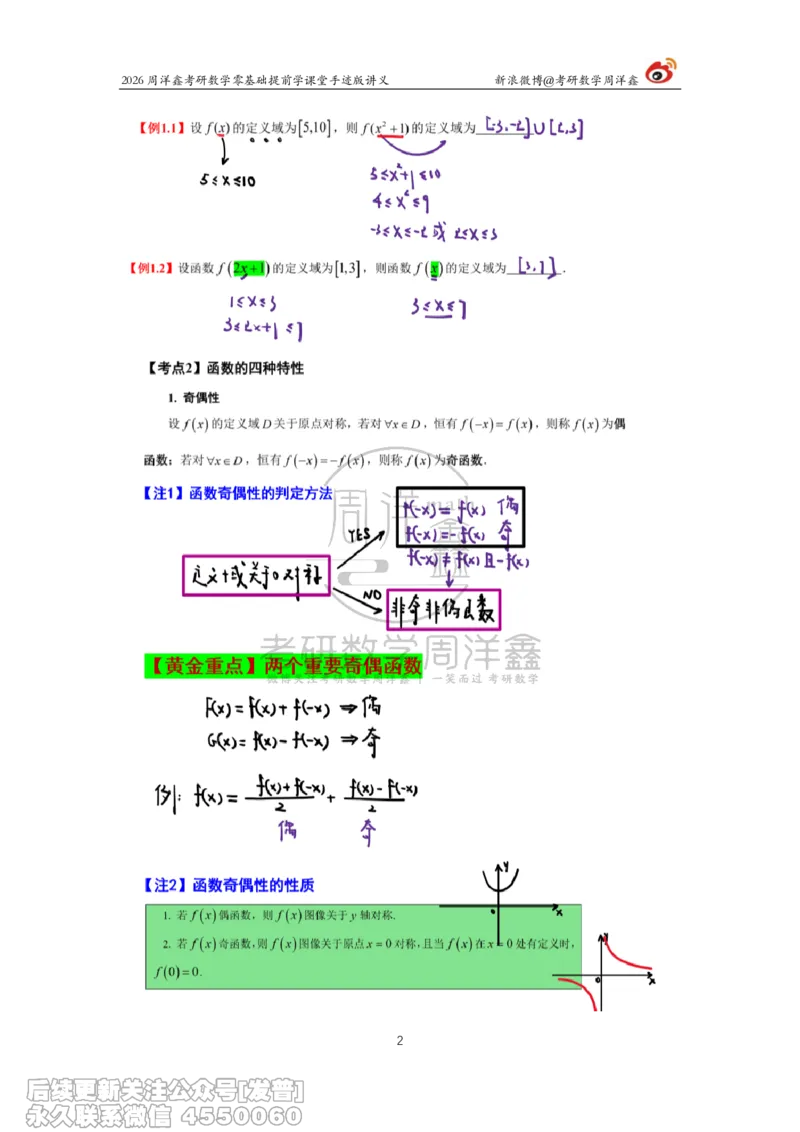 2026 周洋鑫考研数学零基础提前学课堂手迹版讲义 新浪微博@考研数学周洋鑫
【例1.1】设 f(x) 的定义域为[5,10]，则 f(x²+1)的定义域为 [-3,-2]∪[2,3]
5≤x≤10
5≤x²+1≤10
4≤x²≤9
-3≤x≤-2或 2≤x≤3
【例1.2】设函数 f(2x+1)的定义域为[1,3]，则函数 f(x)的定义域为 [3,7].
1≤x≤3
3≤x≤7
3≤2x+1≤7
【考点2】函数的四种特性
1. 奇偶性
设 f(x)的定义域D关于原点对称，若对∀x∈D，恒有 f(-x)=f(x)，则称 f(x)为偶
函数；若对∀x∈D，恒有 f(-x)=-f(x)，则称 f(x)为奇函数.
【注1】函数奇偶性的判定方法
周洋鑫
math
f(-x)=f(x) 偶
YES
f(-x)=-f(x) 奇
f(-x)≠f(x)且-f(x)
定义域关于0对称
NO
非奇非偶函数
考研数学周洋鑫
【黄金重点】两个重要奇偶函数
微博关注考研数学周洋鑫 | 一笑而过 考研数学
F(x)=f(x)+f(-x) ⇒偶
G(x)=f(x)-f(-x) ⇒奇
例: f(x)= (f(x)+f(-x))/2 + (f(x)-f(-x))/2
偶 奇
【注2】函数奇偶性的性质
y
0 x
1. 若 f(x)偶函数，则 f(x)图像关于 y 轴对称.
2. 若 f(x)奇函数,则 f(x)图像关于原点x=0对称,且当 f(x)在x=0处有定义时,
f(0)=0.
y
0 x
2
后续更新关注公众号[发普]
永久联系微信 4550060